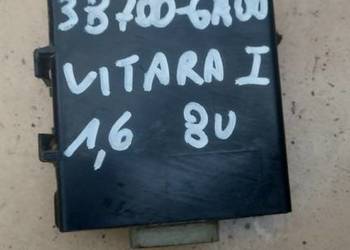 38700-6A00
VITARA I
1,6 8V